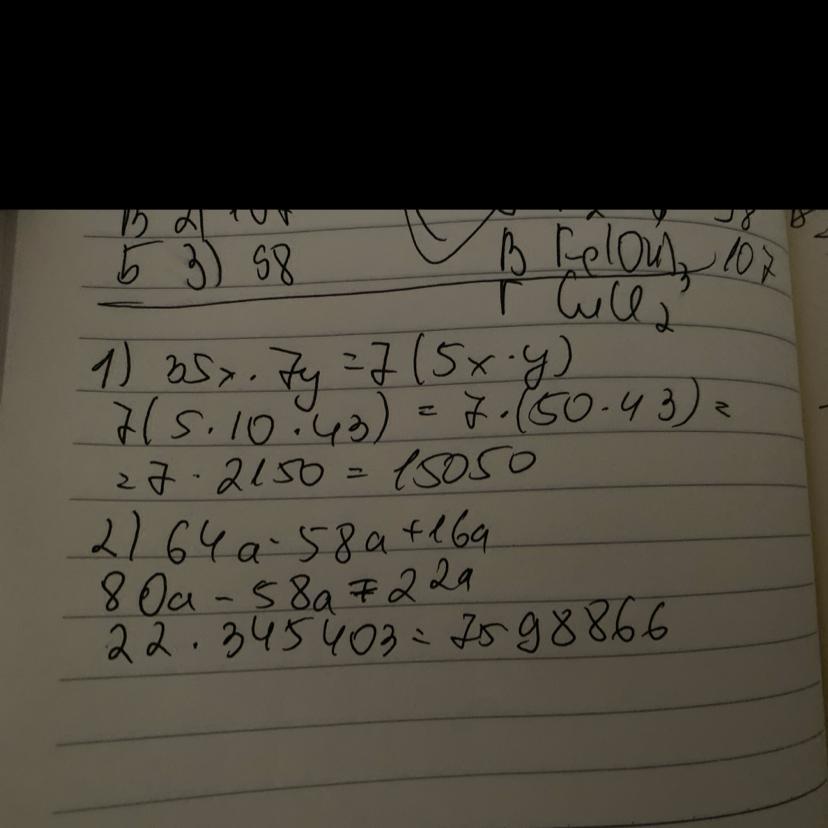 5 3) 58
В Fe(OH)3 107
Г CuCl2
1) 35x · 7y = 7(5x · y)
7(5 · 10 · 43) = 7 · (50 · 43) =
= 7 · 2150 = 15050
2) 64a - 58a + 16a
80a - 58a = 22a
22 · 345403 = 7598866